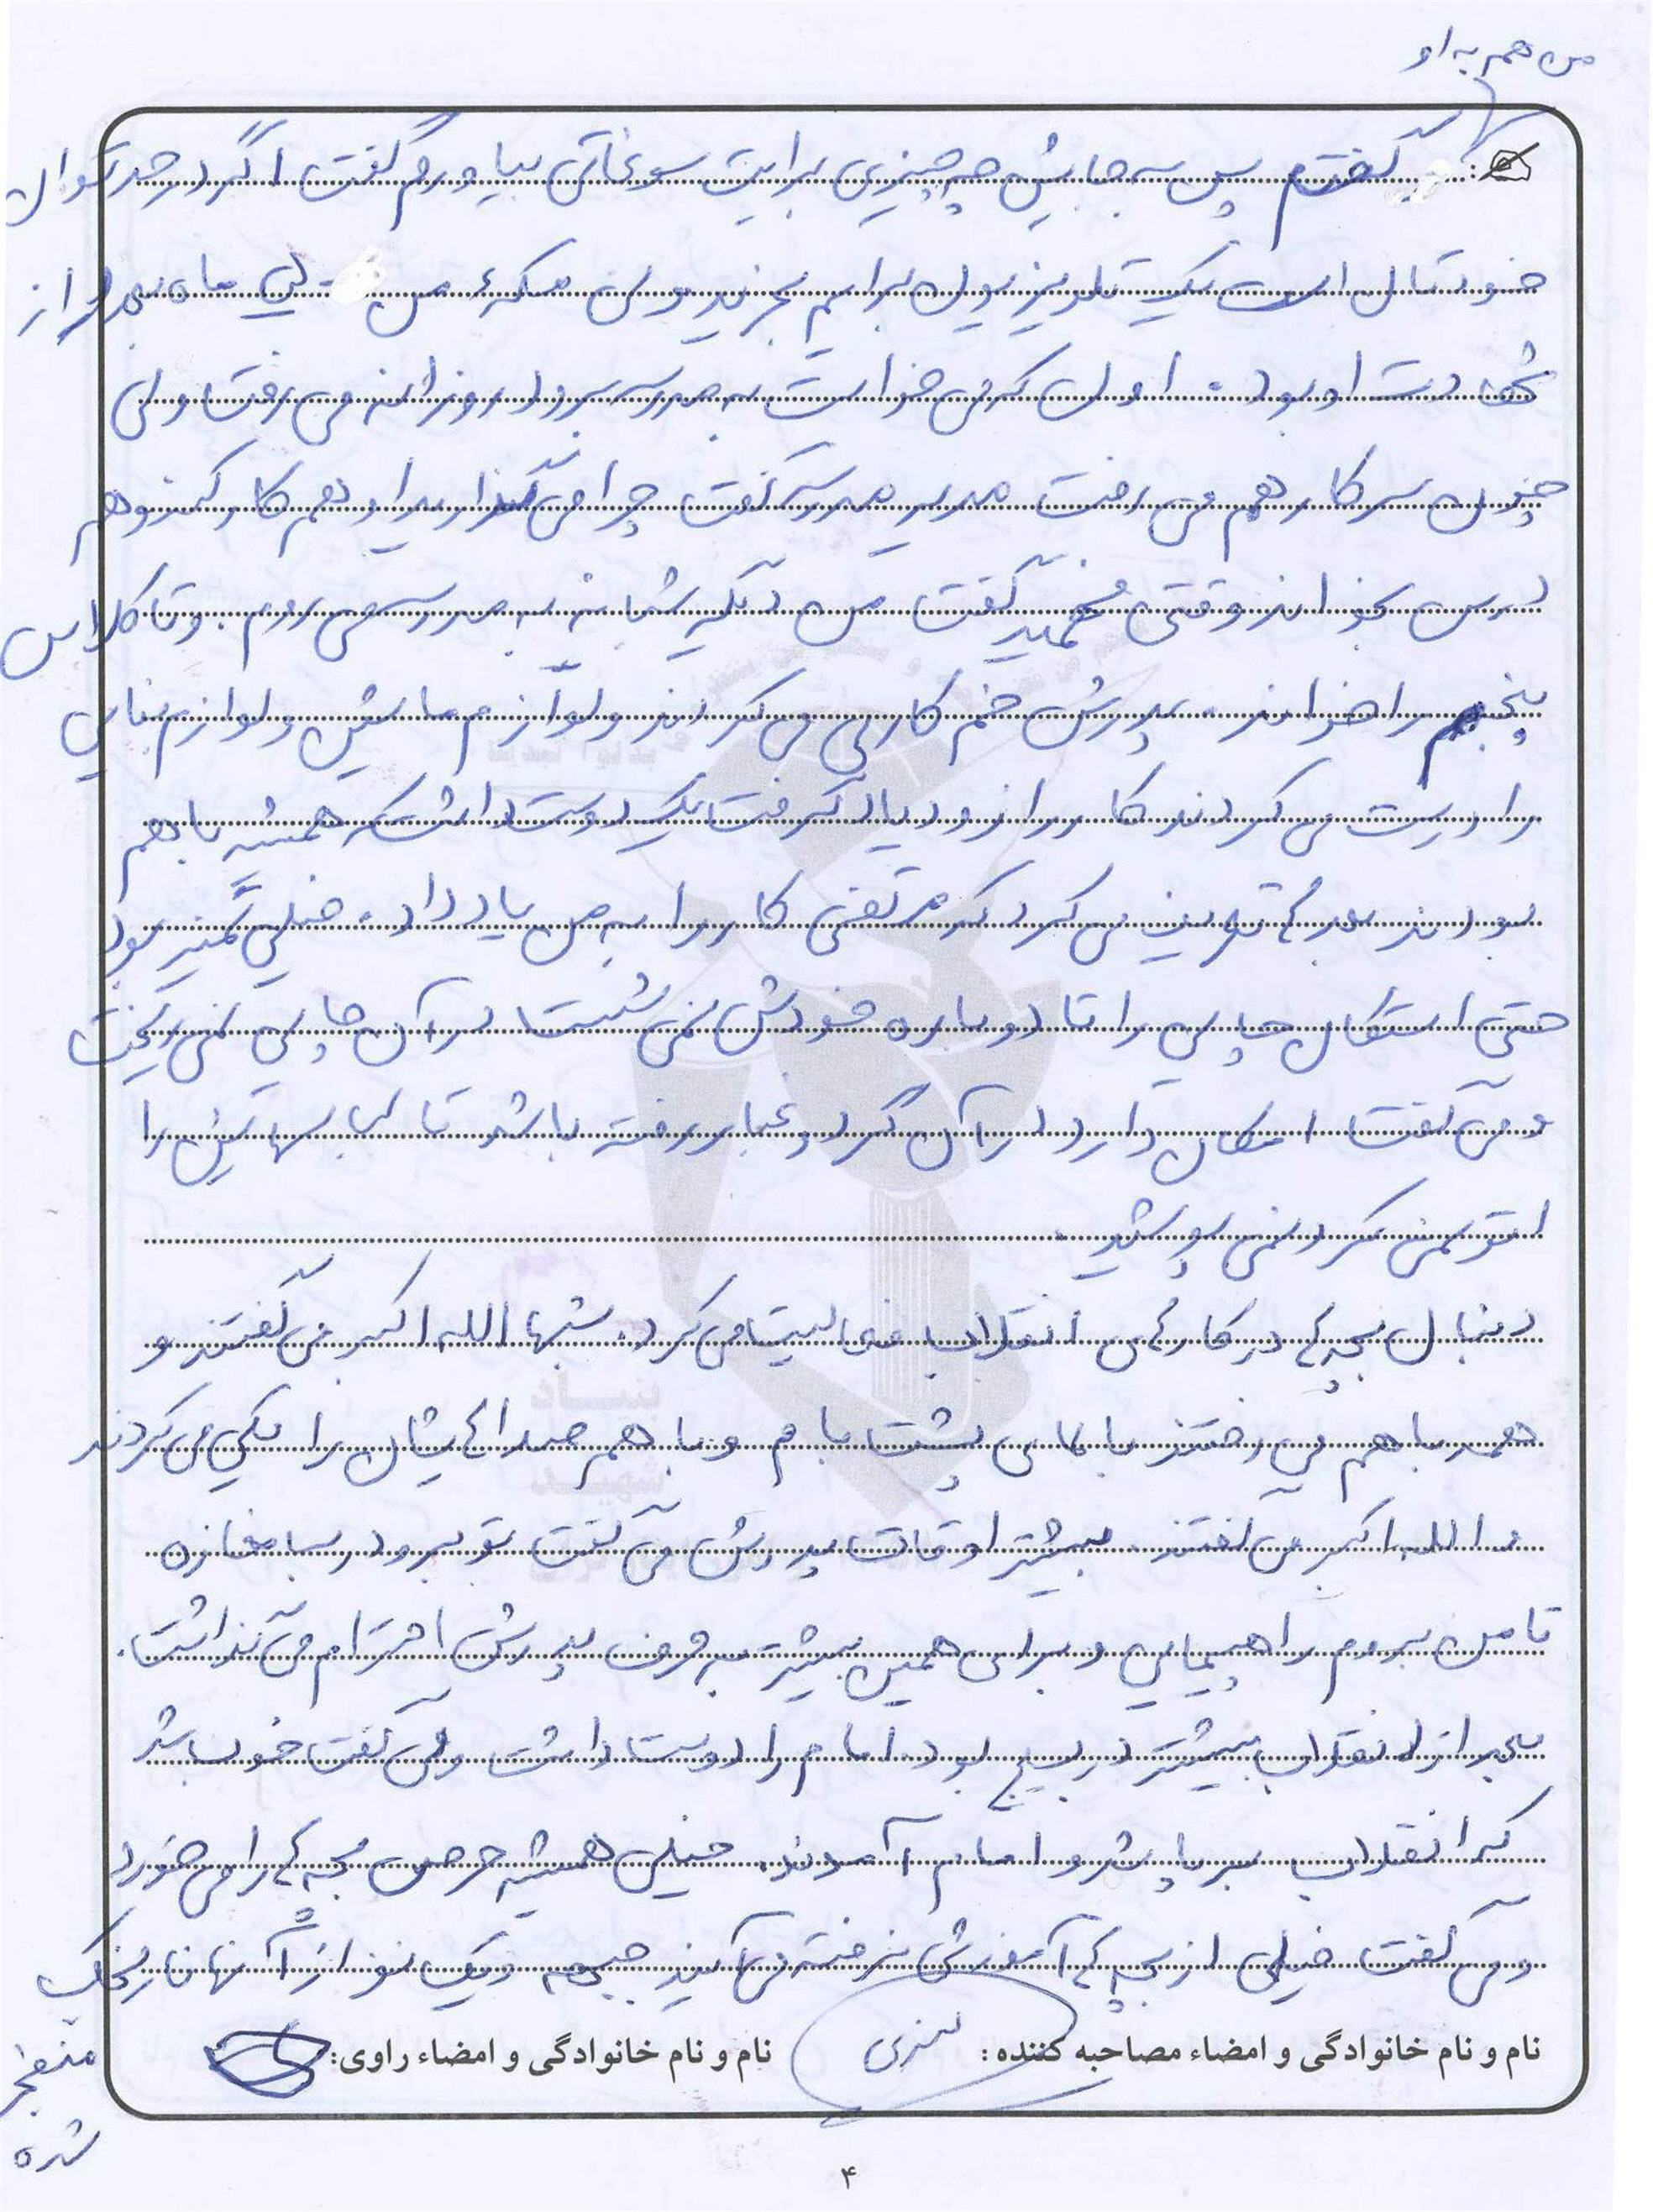 من هم به او
گفتم پس به جایش چه چیزی برایت سوغاتی بیاورم گفت اگر در حد توان
خودتان است یک تلویزیون برایم بخرید ولی مکهٔ من سی ماه بعد از
شهادت او بود. اول که می خواست به مدرسه برود روزانه می رفت ولی
چون سر کار هم می رفت مدیر مدرسه گفت چرا می گذارید او هم کار کند و هم
درس بخواند وقتی فهمید گفت من دیگر شبانه به مدرسه می روم. و تا کلاس
پنجم را خواند. پدرش خم کاری می کردند و لوازم ماشین و لوازم بنایی
را درست می کردند کار را زود یاد گرفت یک دوست داشت که همیشه با هم
بودند بعدها تعریف می کرد که مرتضی کار را به من یاد داد. خیلی تمیز بود
حتی استکان چایی را تا دوباره خودش نمی شست در آن چایی نمی ریخت
و می گفت امکان دارد در آن گرد و غبار رفته باشد تا لباسهایش را
اتو نمی کرد نمی پوشید.
دنبال بچه ها در کارهای انقلاب فعالیت می کرد. شبها الله اکبر می گفتند و
همه با هم می رفتند بالای پشت بام و با هم صداهایشان را یکی می کردند
و الله اکبر می گفتند. بیشتر اوقات پدرش می گفت تو برو درب مغازه
تا من بروم راهپیمایی و برای همین بیشتر به حرف پدرش احترام می گذاشت.
بعد از انقلاب بیشتر در بسیج بود. امام را دوست داشت و می گفت خوب شد
که انقلاب برپا شد و امام آمدند. خیلی همیشه حرص بچه ها را می خورد
و می گفت خیلی از بچه ها آموزشی نرفته می آیند جبهه و یک نفر از آنها نارنجک
منفجر
شده
نام و نام خانوادگی و امضاء مصاحبه کننده:
نام و نام خانوادگی و امضاء راوی:
۴